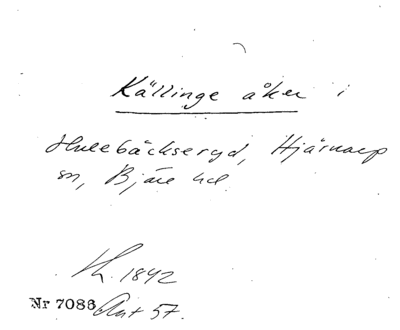 Källinge åker i
Hulebäckseryd, Hjärnarp
sn, Bjäre hd
Lh. 1842
Nr 7086 Ant 57.